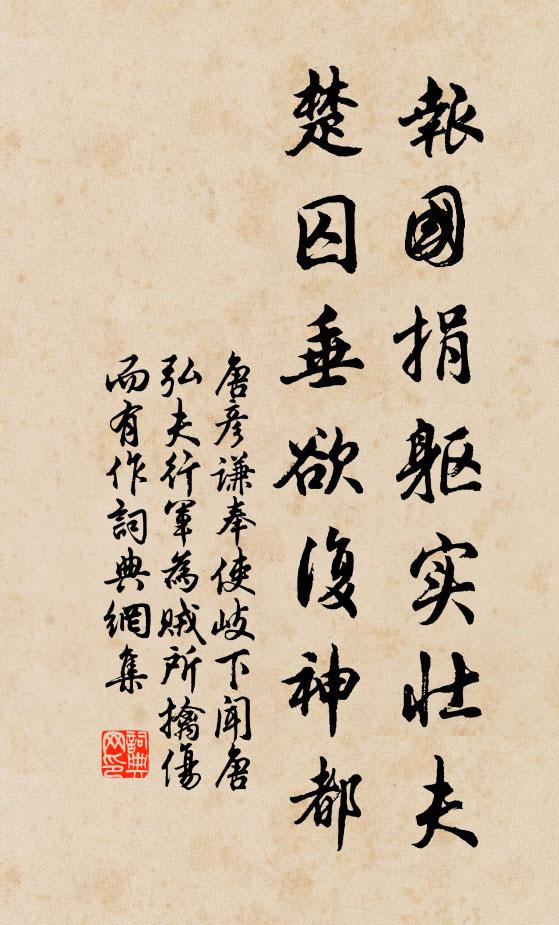 報國捐軀实壮夫
楚囚垂欲復神都
唐彦謙奉使岐下聞唐
弘夫行軍為賊所擒傷
而有作詞典網集
詞典
网印